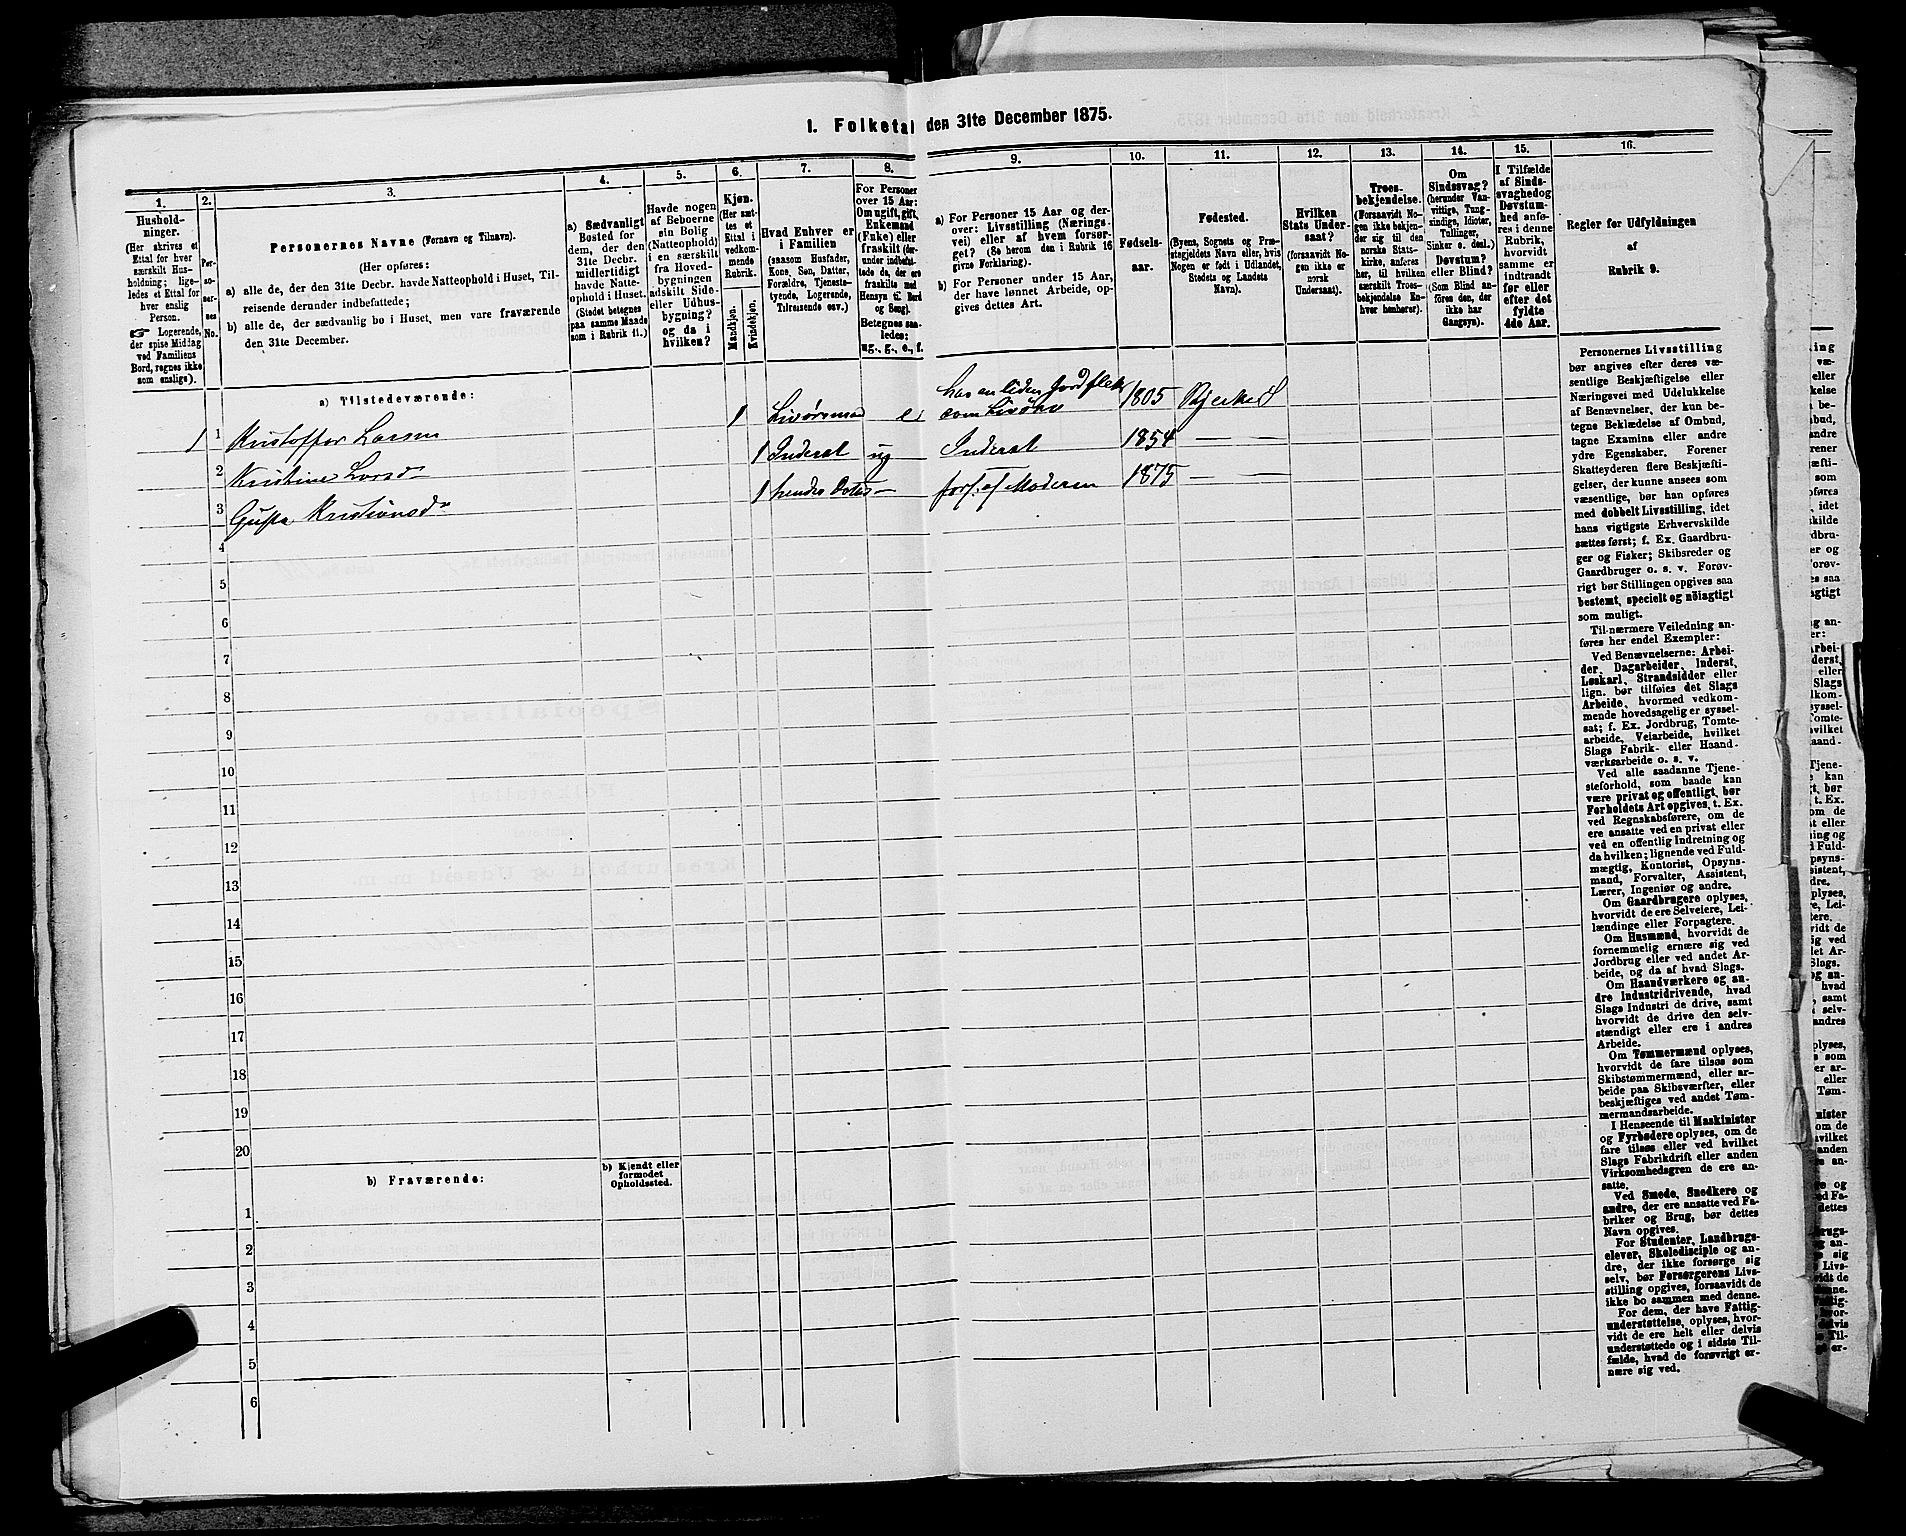 1. Folketal den 31te December 1875.
1.
Hushold-
ninger.
(Her skrives et
Ettal for hver
særskilt Hus-
holdning; lige-
ledes et Ettal for
hver enslig
Person.
☞ Logerende,
der spise Middag
ved Familiens
Bord, regnes ikke
som enslige).
2.
Per-
so-
ner-
nes
No.
3.
Personernes Navne (Fornavn og Tilnavn).
(Her opføres:
a) alle de, der den 31te Decbr. havde Natteophold i Huset, Til-
reisende derunder indbefattede;
b) alle de, der sædvanlig bo i Huset, men vare fraværende
den 31te December.
4.
a) Sædvanligt
Bosted for
dem, der den
31te Decbr.
midlertidigt
havde Natte-
ophold i Huset.
(Stedet betegnes
paa samme Maade
som i Rubrik 11.)
5.
Havde nogen
af Beboerne
sin Bolig
(Natteophold)
i en særskilt
fra Hoved-
bygningen
adskilt Side-
eller Udhus-
bygning?
og da i
hvilken?
6.
Kjøn.
(Her sæt-
tes et
Ettal i
vedkom-
mende
Rubrik.
Mandkjøn.
Kvindekjøn.
7.
Hvad Enhver er
i Familien
(saasom Husfader,
Kone, Søn, Datter,
Forældre, Tjeneste-
tyende, Logerende,
Tilreisende osv.)
8.
For Personer
over 15 Aar:
Om ugift, gift,
Enkemand
(Enke) eller
fraskilt (der-
under indbefat-
tede de, der ere
fraskilte med
Hensyn til Bord
og Seng).
Betegnes saa-
ledes:
ug., g., e., f.
9.
a) For Personer 15 Aar og der-
over: Livsstilling (Nærings-
vei) eller af hvem forsør-
get? (Se herom den i Rubrik 16
givne Forklaring).
b) For Personer under 15 Aar,
der have lønnet Arbeide, op-
gives dettes Art.
10.
Fødsels-
aar.
11.
Fødested.
(Byens, Sognets og Præ-
stegjeldets Navn eller, hvis
Nogen er født i Udlandet,
Stedets og Landets
Navn).
12.
Hvilken
Stats Under-
saat?
(forsaavidt No-
gen ikke er
norsk
Undersaat).
13.
Troes-
bekjendelse.
(Forsaavidt No-
gen ikke bekjen-
der sig til den
norske Stats-
kirke, anføres
her, til hvilken
særskilt Troes-
bekjendelse En-
hver henhører).
14.
Om
Sindssvag?
(herunder Van-
vittige, Tung-
sindige, Idioter,
Tullinger,
Sinker o. desl.)
Døvstum?
eller Blind?
(Som Blind an-
føres den, der
ikke har
Gangsyn).
15.
I Tilfælde
af Sinds-
svaghed og
Døvstum-
hed anfø-
res i denne
Rubrik,
hvorvidt
samme er
indtraadt
før eller
efter det
fyldte
4de Aar.
16.
Regler for Udfyldningen
af
Rubrik 9.
a) Tilstedeværende:
1 1 Kristoffer Larsen 1 e har en liden Jordflek 1805
2 Kristine Larsd. 1 Inderst ug Inderst 1854 —
3 Kristiansd. 1 hendes Dotter — fors. af Moderen 1875 —
4
5
6
7
8
9
10
11
12
13
14
15
16
17
18
19
20
b) Fraværende:
b) Kjendt eller
formodet
Opholdssted.
1
2
3
4
5
6
Personernes Livsstilling
bør angives efter deres væ-
sentlige Beskjæftigelse eller
Næringsvei med Udelukkelse
af Benævnelser, der kun be-
tegne Beklædelse af Ombud,
tagne Examina eller andre
ydre Egenskaber. Forener
Skatteyderen flere Beskjæfti-
gelser, der kunne ansees som
væsentlige, bør han opføres
med dobbelt Livsstilling, idet
hans vigtigste Erhvervskilde
sættes først; f. Ex. Gaardbru-
ger og Fisker; Skibsreder og
Gaardbruger o. s. v. Forøv-
rigt bør Stillingen opgives saa
bestemt, specielt og nøiagtigt
som muligt.
Til nærmere Veiledning an-
føres her endel Exempler:
Ved Benævnelserne: Arbei-
der, Dagarbeider, Inderst,
Løskarl, Strandsidder eller
lign. bør tilføies det Slags
Arbeide, hvormed vedkom-
mende hovedsagelig er syssel-
sat; f. Ex. Jordbrug, Tomte-
arbeide, Veiarbeide, hvilket
Slags Fabrik- eller Haand-
værksarbeide o. s. v.
Ved alle saadanne Tjene-
steforhold, som baade kan
være privat og offentligt, bør
Forholdets Art opgives, t. Ex.
ved Regnskabsførere, om de
ere ansatte ved en privat eller
ved en offentlig Indretning og
da hvilken; lignende ved Fuld-
mægtig, Kontorist, Opsyns-
mand, Forvalter, Assistent,
Lærer, Ingeniør og andre.
Om Gaardbrugere oplyses,
hvorvidt de ere Selveiere, Lei-
lændinge eller Forpagtere.
Om Husmænd, hvorvidt de
fornemmelig ernære sig ved
Jordbrug eller ved andet Ar-
beide, og da af hvad Slags.
Om Haandværkere og an-
dre Industridrivende, hvad
Slags Industri de drive, samt
hvorvidt de drive den selv-
stændigt eller ere i andres
Arbeide.
Om Tømmermænd oplyses,
hvorvidt de fare tilsøs som
Skibstømmermænd, eller ar-
beide paa Skibsværfter, eller
beskjæftiges ved andet Tøm-
mermandsarbeide.
I Henseende til Maskinister
og Fyrbødere oplyses, om de
fare tilsøs eller ved hvilket
Slags Fabrikdrift eller anden
Virksomhedsgren de ere an-
satte.
Ved Smede, Snedkere og
andre, der ere ansatte ved Fa-
briker og Brug, bør dettes
Navn opgives.
For Studenter, Landbrugs-
elever, Skoledisciple og an-
dre, der ikke forsørge sig
selv, bør Forsørgerens Livs-
stilling opgives, forsaavidt de
ikke bo sammen med denne.
For dem, der have Fattig-
understøttelse, oplyses, hvor-
vidt de ere helt eller delvis
understøttede og i sidste Til-
fælde, hvad de forøvrigt er-
nære sig ved.